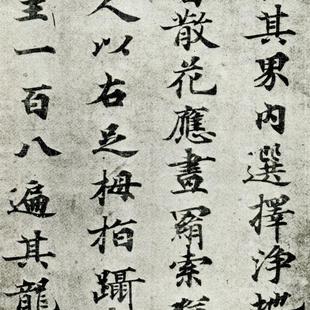 其界内選擇淨
散花應畫羂索
人以右足栂指躡
一百八遍其龍